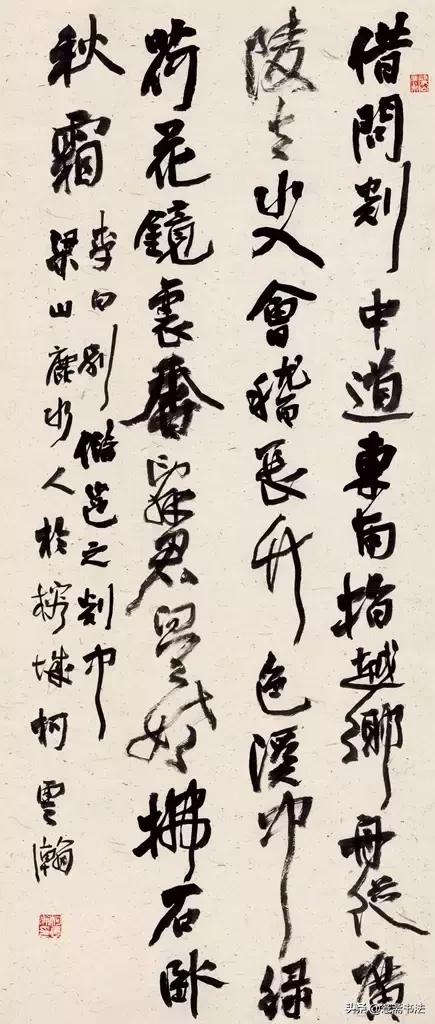 借問剡中道東南指越鄉舟從廣
陵去水入會稽長竹色溪下緑
荷花鏡裏香辭君向天姥拂石卧
秋霜
李白別儲邕之剡中
梁山鹿水人於榕城柯雲瀚
头条 @斋书法